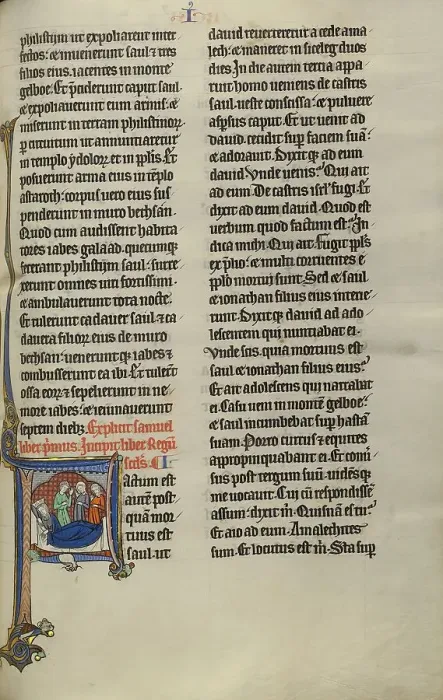 philistiim ut expoliarent inter
fectos: et inuenerunt saul et tres
filios eius iacentes in monte
gelboe. Et p̄ciderunt caput saul.
et expoliauerunt eum armis: et
miserunt in terram philistinoꝝ
ꝑ circuitum ut annuntiaretur
in templo ydoloꝝ et in pl̄is. Et
posuerunt arma eius in tēplo
astaroth: corpus uero eius sus
penderunt in muro bethsan.
Quod cum audissent habita
tores iabes galaad. quecumqꝫ
fecerant philistiim saul: surre
xerunt omnes uiri fortissimi.
et ambulauerunt tota nocte.
Et tulerunt cadauer saul et ca
dauera filioꝝ eius de muro
bethsan. ueneruntqꝫ iabes et
combusserunt ea ibi. Et tulerūt
ossa eoꝝ et sepelierunt in ne
more iabes: et ieiunauerunt
septem diebꝫ. Explicit samuel
liber p̄mus. Incipit liber Regū
scd̄s. C I.
Factum est
autē post
quā mor
tuus est
saul. ut
dauid reuerteretur a cede ama
lech: et maneret in siceleg duos
dies. In die autem tertia appa
ruit homo ueniens de castris
saul. ueste conscissa: et puluere
asp̄sus caput. Et ut uenit ad
dauid. cecidit sup̄ faciem suā:
et adorauit. Dixitqꝫ ad eum
dauid. Vnde uenis? Qui ait
ad eum. De castris isrl̄ fugi. Et
dixit ad eum dauid. Quod est
uerbum quod factum est? In
dica michi. Qui ait. Fugit pp̄ls
ex p̄lio: et multi corruentes e
pp̄lo mortui sunt. Sed et saul
et ionathan filius eius interie
runt. Dixitqꝫ dauid ad ado
lescentem qui nuntiabat ei.
Vnde scis. quia mortuus est
saul et ionathan filius eius?
Et ait adolescens qui narrabat
ei. Casu ueni in montē gelboe:
et saul incumbebat sup̄ hastā
suam. Porro currus et equites
appropinquabant ei. Et conu̾
sus post tergum suū. uidensqꝫ
me uocauit. Cui cū respondissē
assum: dixit m̄. Quisnā es tu?
Et aio ad eum. Amalechites
sum. Et locutus est m̄. Sta sup̄